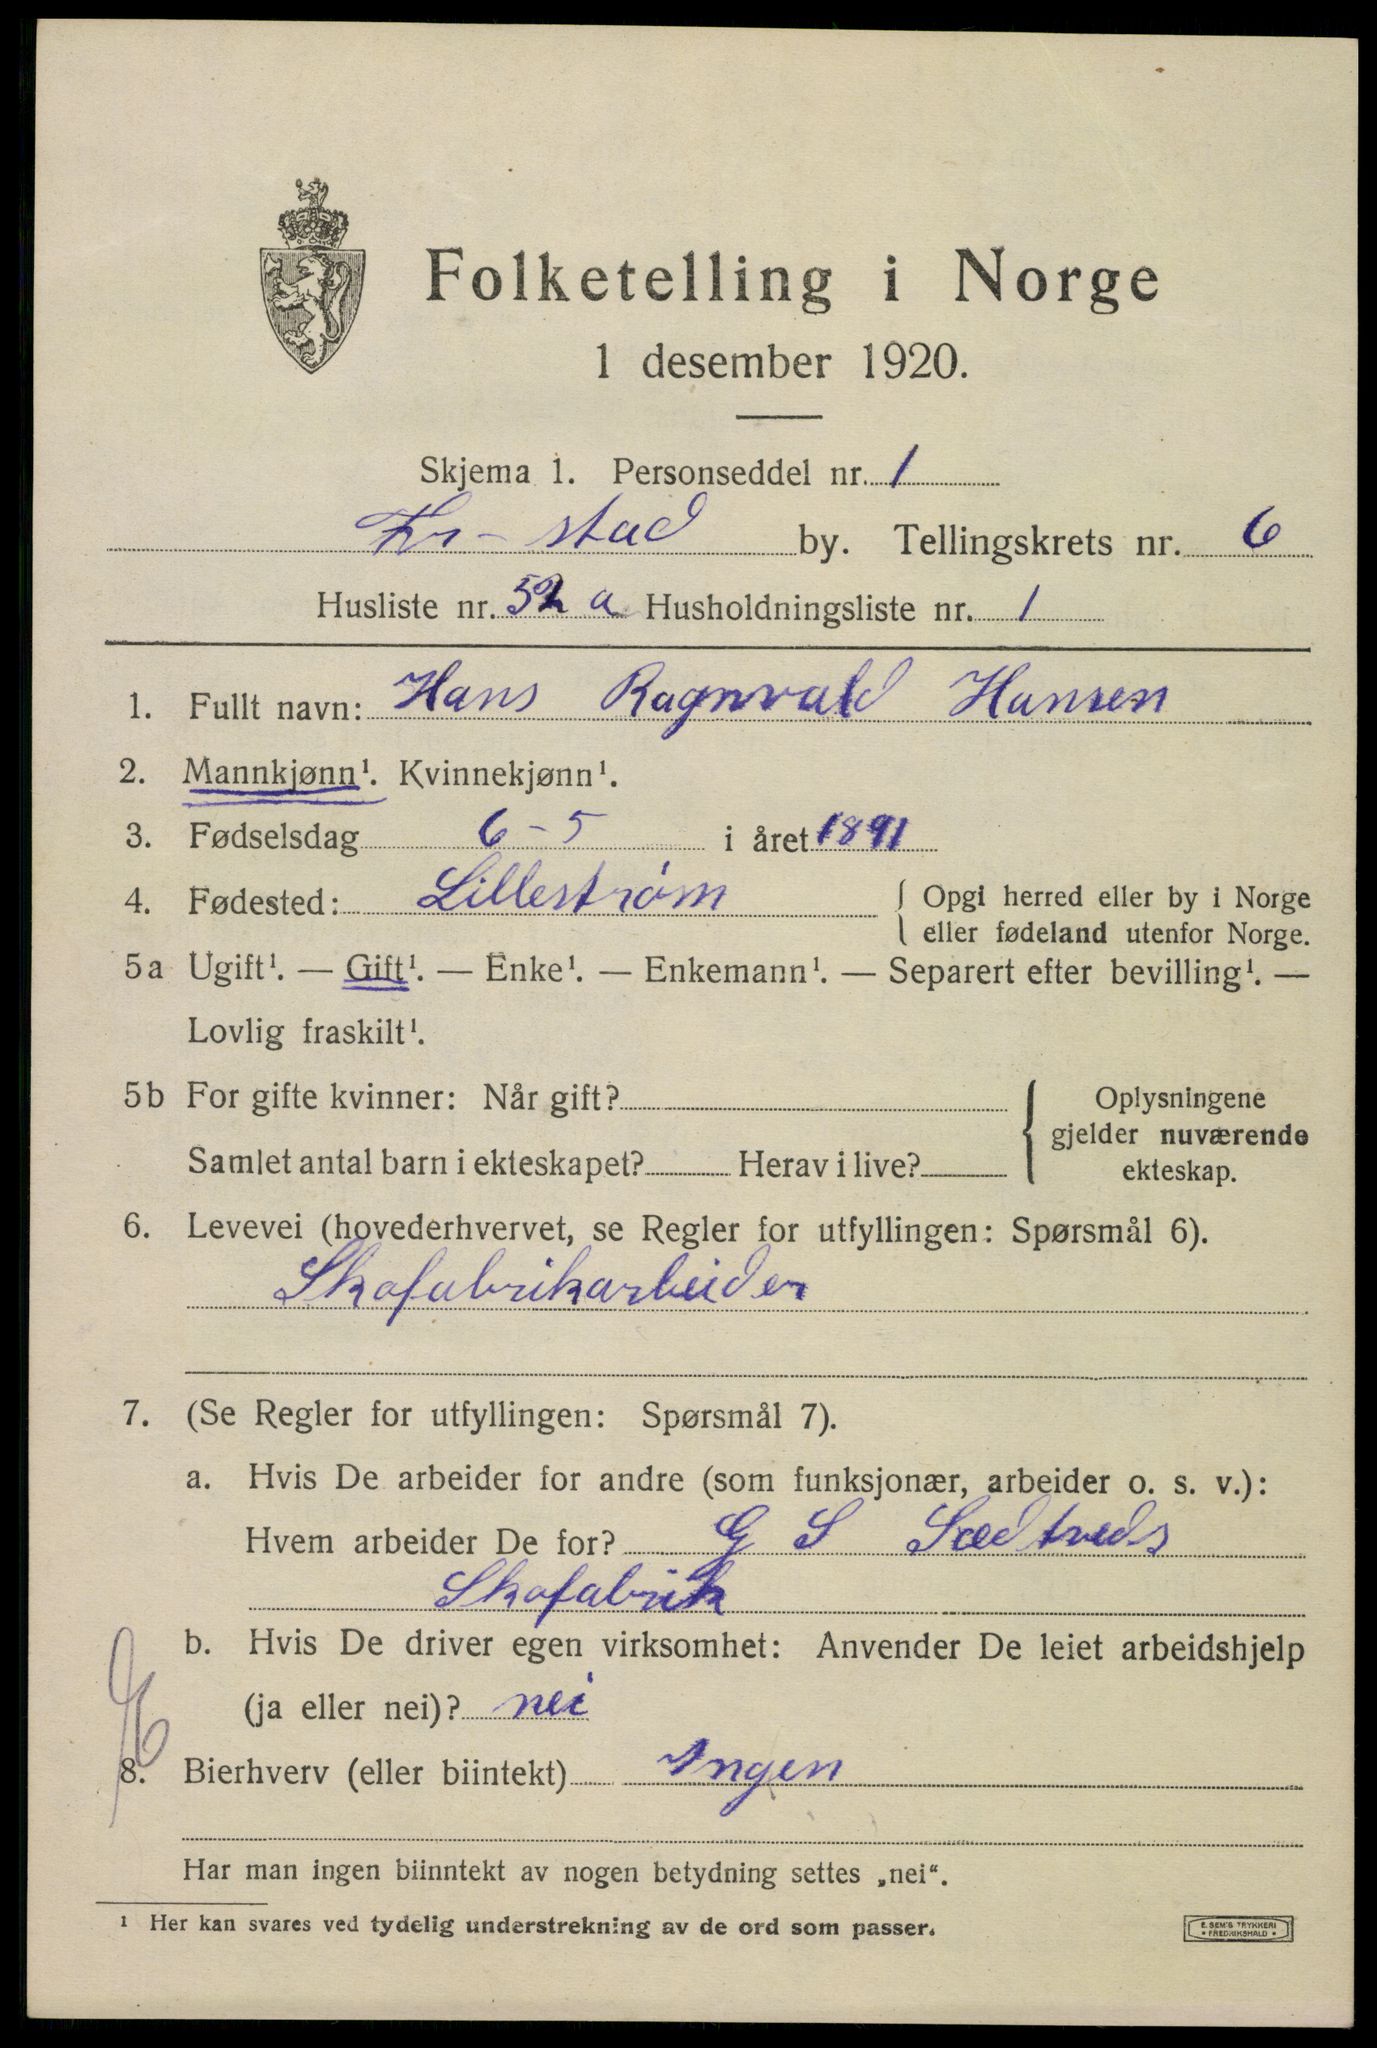 Folketelling i Norge
1 desember 1920.
Skjema 1. Personseddel nr. 1
Fr-stad by. Tellingskrets nr. 6
Husliste nr. 52 a Husholdningsliste nr. 1
1. Fullt navn: Hans Ragnvald Hansen
2. Mannkjønn¹. Kvinnekjønn¹.
3. Fødselsdag 6-5 i året 1891
4. Fødested: Lillestrøm { Opgi herred eller by i Norge
eller fødeland utenfor Norge.
5a Ugift¹. — Gift¹. — Enke¹. — Enkemann¹. — Separert efter bevilling¹. —
Lovlig fraskilt¹.
5b For gifte kvinner: Når gift? { Oplysningene
gjelder nuværende
Samlet antal barn i ekteskapet? Herav i live? ekteskap.
6. Levevei (hovederhvervet, se Regler for utfyllingen: Spørsmål 6).
Skofabrikarbeider
7. (Se Regler for utfyllingen: Spørsmål 7).
a. Hvis De arbeider for andre (som funksjonær, arbeider o. s. v.):
Hvem arbeider De for? G S Sædtveds
Skofabrik
b. Hvis De driver egen virksomhet: Anvender De leiet arbeidshjelp
(ja eller nei)? nei
8. Bierhverv (eller biintekt) Ingen
Har man ingen biinntekt av nogen betydning settes „nei“.
¹ Her kan svares ved tydelig understrekning av de ord som passer.
E. SEM'S TRYKKERI
• FREDRIKSHALD •